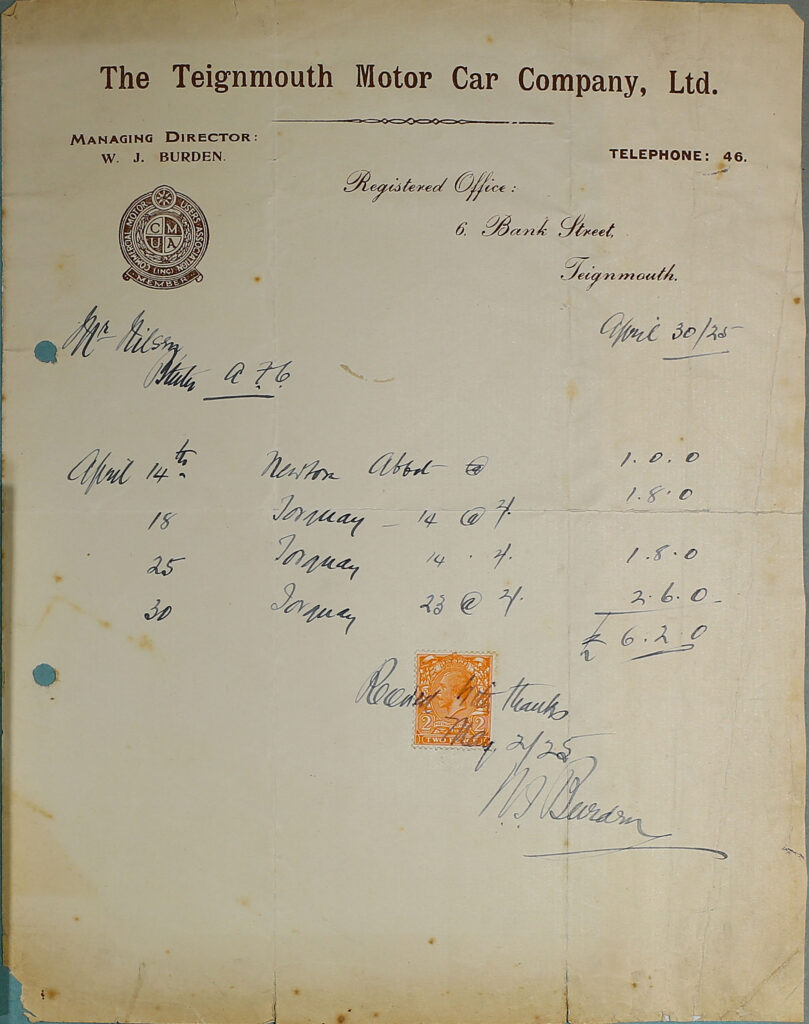 The Teignmouth Motor Car Company, Ltd.
MANAGING DIRECTOR:
W. J. BURDEN.
TELEPHONE: 46.
Registered Office:
6, Bank Street,
Teignmouth.
COMMERCIAL MOTOR USERS ASSOCIATION (INC)
CMUA
MEMBER
April 30/25
Mr
April 14th Newton Abbot @ 1.0.0
18 Torquay - 14 @ 2/. 1.8.0
25 Torquay 14 . 2/. 1.8.0
30 Torquay 23 @ 2/. 2.6.0
£ 6.2.0
Received with thanks
2 2
May 2/25
W J Burden